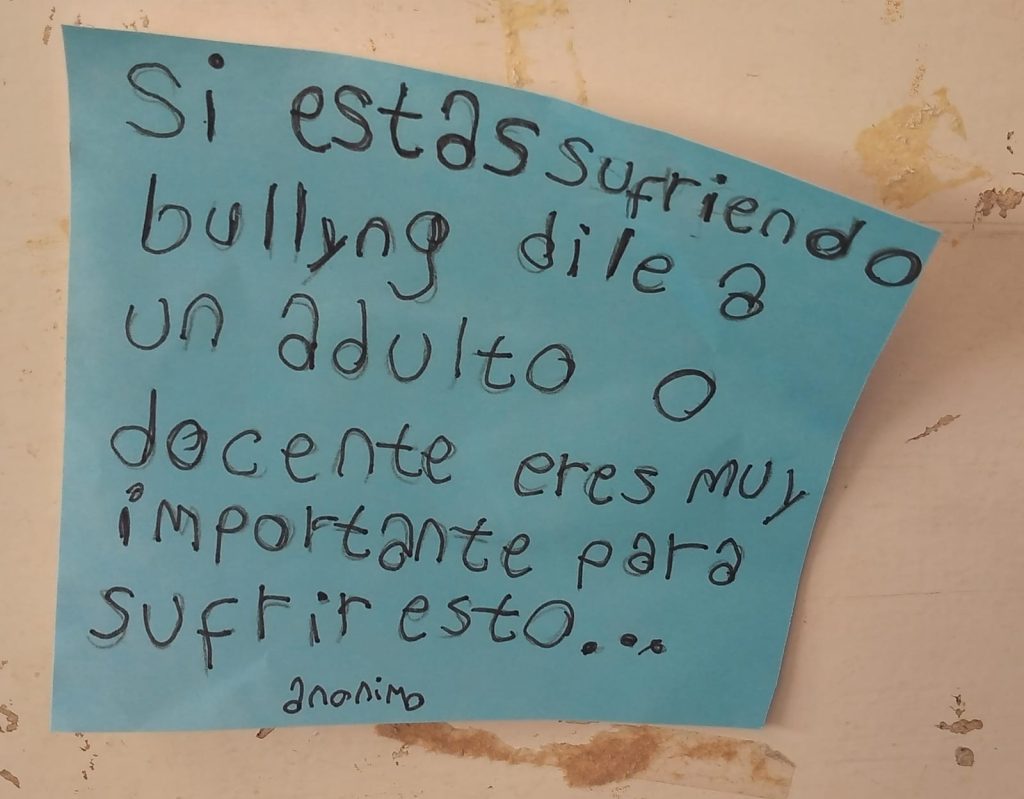 Si estas sufriendo
bullyng dile a
un adulto o
docente eres muy
importante para
sufrir esto...
anonimo